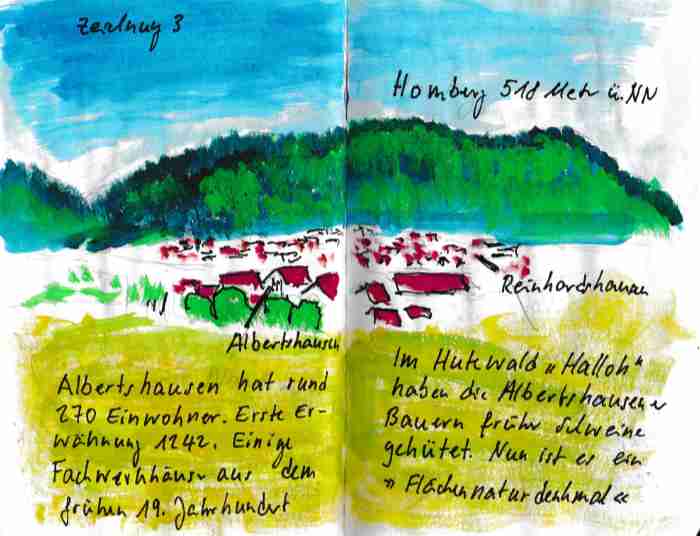 Zeichnung 3
Homberg 518 Metr ü. NN
Reinhardshausen
Albertshausen
Albertshausen hat rund
270 Einwohner. Erste Er-
wähnung 1242. Einige
Fachwerkhäuser aus dem
frühen 19. Jahrhundert
Im Hutewald „Halloh“
haben die Albertshausener
Bauern früher Schweine
gehütet. Nun ist es ein
»Flächennaturdenkmal«